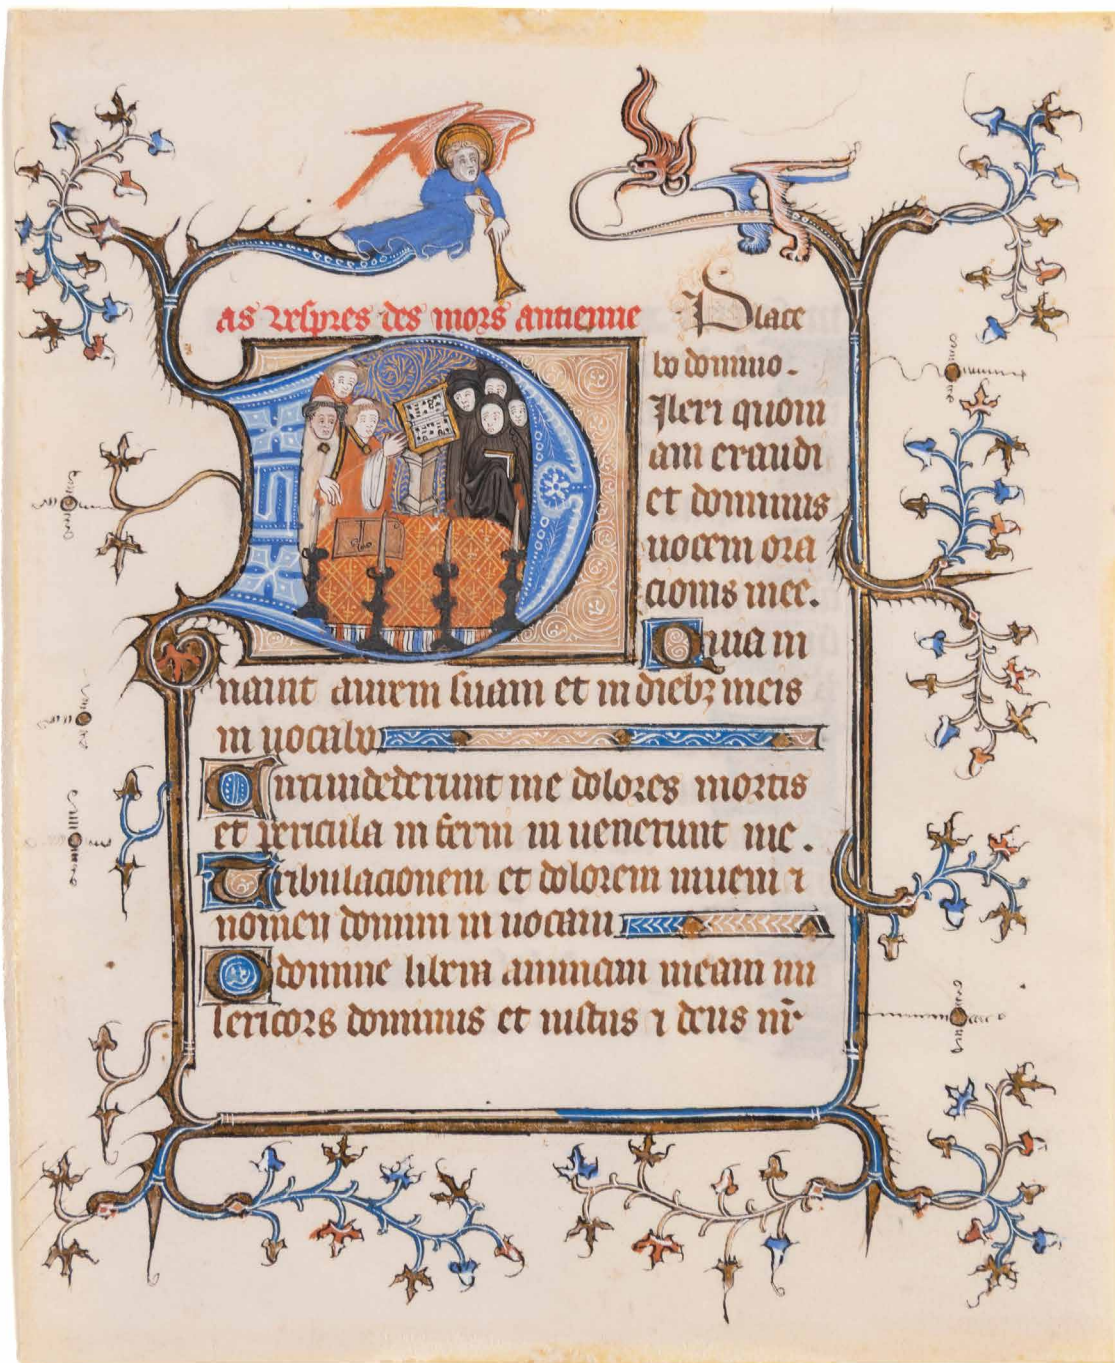 as vespres des mors antienne Place
bo domino.
Dilexi quoni
am exaudi
et dominus
uocem ora
cionis mee.
Quia in
nauit aurem suam et in dieb; meis
in uocabo
Circumdederunt me dolores mortis
et pericula inferni in uenerunt me.
Tribulacionem et dolorem inueni ⁊
nomen domini in uocaui
O domine libera animam meam mi
sericors dominus et iustus ⁊ deus nr̄